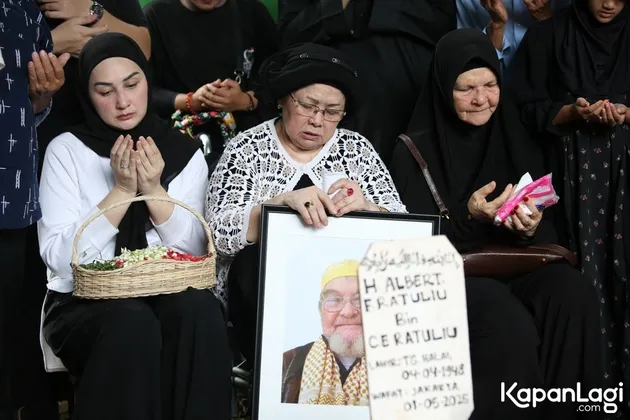 H ALBERT
FRATULIU
Bin
CERATULIU
LAHIR: TG. HALM.
04-04-1948
WAFAT: JAKARTA
01-05-2025
KAPANLAGI
.com